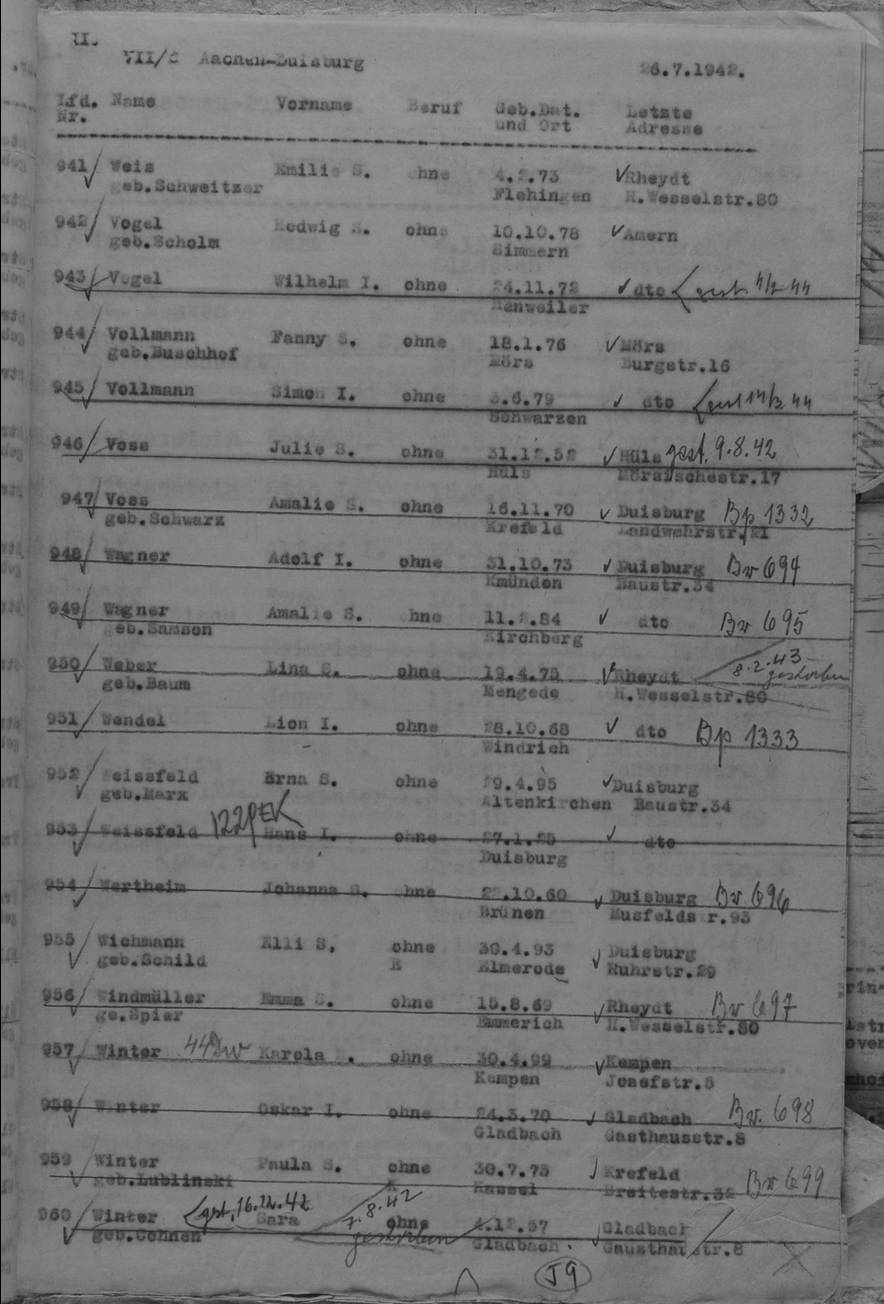 II.
VII/2 Aachen-Duisburg 26.7.1942.
Lfd. Name Vorname Beruf Geb.Dat. Letzte
Nr. und Ort Adresse
941/ Weis Emilie S. ohne 4.2.73 Rheydt
geb.Schweitzer Flehingen H.Wesselstr.80
942/ Vogel Hedwig S. ohne 10.10.78 Amern
geb.Scholm Simmern
943/ Vogel Wilhelm I. ohne 24.11.72 dto gest 4/2 44
944/ Vollmann Fanny S. ohne 18.1.76 Mörs
geb.Buschhof Mörs Burgstr.16
945/ Vollmann Simon I. ohne .6.79 dto gest 14/2 44
Schwarzen
946/ Voss Julie S. ohne 31.12.52 Hüls gest. 9.8.42
Hüls Mörsischestr.17
947/ Voss Amalie S. ohne 16.11.70 Duisburg Bp 1332
geb.Schwarz Krefeld Landwehrstr.21
948/ Wagner Adolf I. ohne 31.10.73 Duisburg Bv 694
Kmünden Baustr.34
949/ Wagner Amalie S. ohne 11. .84 dto Bv 695
geb.Samson Kirchberg
950/ Weber Lina S. ohne 19.4.75 Rheydt 8.2.43
gestorben
geb.Baum Mengede H.Wesselstr.80
951/ Wendel Lion I. ohne 28.10.68 dto Bp 1333
Windrich
952/ Weissfeld Erna S. ohne 29.4.95 Duisburg
geb.Marx Altenkirchen Baustr.34
953/ Weissfeld Hans I. ohne 27.1.25 dto
Duisburg
954/ Wertheim Johanna S. ohne 2 .10.60 Duisburg Bv 696
Brünen Musfeldstr.93
955/ Wichmann Elli S. ohne 30.4.93 Duisburg
geb.Schild E Elmerode Ruhrstr.29
956/ Windmüller Emma S. ohne 15.8.69 Rheydt Bv 697
ge.Spier Emmerich H.Wesselstr.80
957/ Winter Karola S. ohne 30.4.99 Kempen
Kempen Josefstr.5
958/ Winter Oskar I. ohne 24.3.70 Gladbach Bv. 698
Gladbach Gasthausstr.8
959 / Winter Paula S. ohne 30.7.75 Krefeld
geb.Lublinski Kassel Breitestr.32 Bv 699
960/ Winter gst. 16.12.42 Sara 7.8.42 ohne 4.12.57 Gladbach
geb.Cohnen gestorben Gladbach. Gausthausstr.8
59